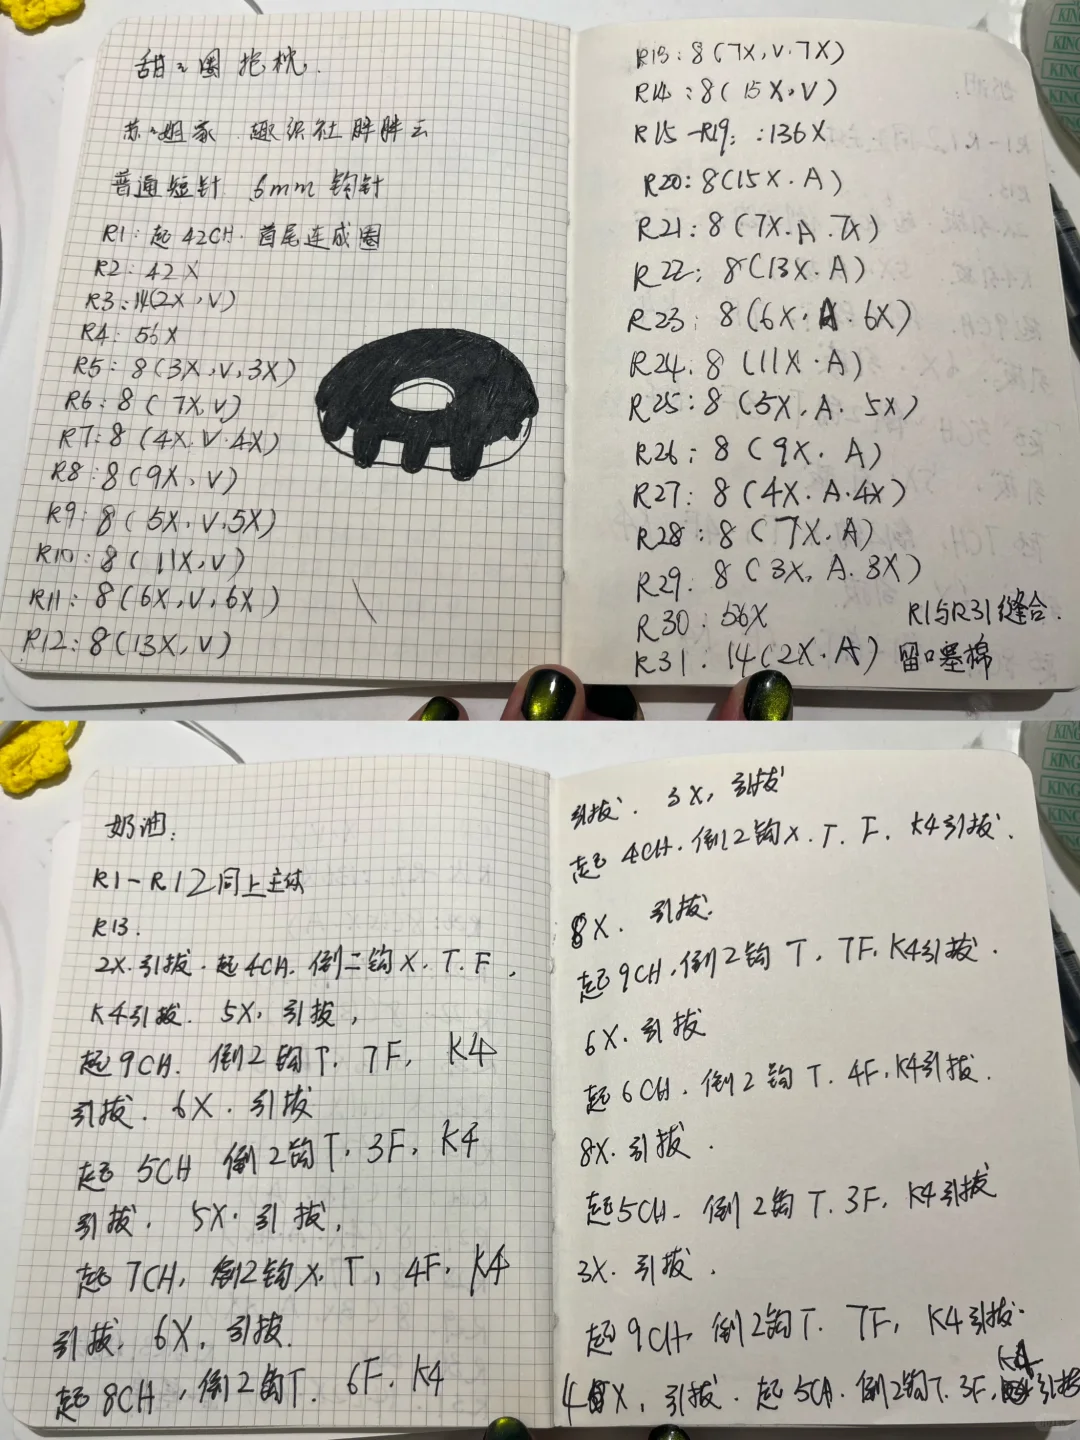 甜々圈抱枕.
苏々姐家 趣织社胖胖云
普通短针 6mm 钩针
R1:起42CH.首尾连成圈
R2:42X
R3:14(2X,V)
R4:56X
R5:8(3X,V,3X)
R6:8(7X,V)
R7:8(4X.V.4X)
R8:8(9X,V)
R9:8(5X,V,5X)
R10:8(11X,V)
R11:8(6X,V,6X)
R12:8(13X,V)
R13:8(7X,V.7X)
R14:8(15X,V)
R15-R19::136X
R20:8(15X.A)
R21:8(7X.A.7X)
R22:8(13X.A)
R23:8(6X.A.6X)
R24:8(11X.A)
R25:8(5X,A.5X)
R26:8(9X.A)
R27:8(4X.A.4X)
R28:8(7X.A)
R29:8(3X,A.3X)
R30:56X R1与R31缝合.
R31.14(2X.A) 留口塞棉
KING
KING
KING
KING
奶油:
R1-R12同上主体
R13.
2X.引拔.起4CH.倒二钩X.T.F,
K4引拔.5X,引拔,
起9CH.倒2钩T.7F,K4
引拔.6X.引拔
起5CH 倒2钩T.3F,K4
引拔.5X.引拔,
起7CH,倒2钩X,T,4F,K4
引拔,6X,引拔.
起8CH,倒2钩T.6F.K4
引拔.3X,引拔
起4CH.倒2钩X.T.F.K4引拔.
8X.引拔.
起9CH.倒2钩T,7F,K4引拔.
6X.引拔
起6CH.倒2钩T.4F,K4引拔.
8X.引拔.
起5CH.倒2钩T.3F,K4引拔
3X.引拔.
起9CH,倒2钩T.7F,K4引拔.
4X,引拔.起5CH.倒2钩T.3F,K4引拔
KING
KING
KING